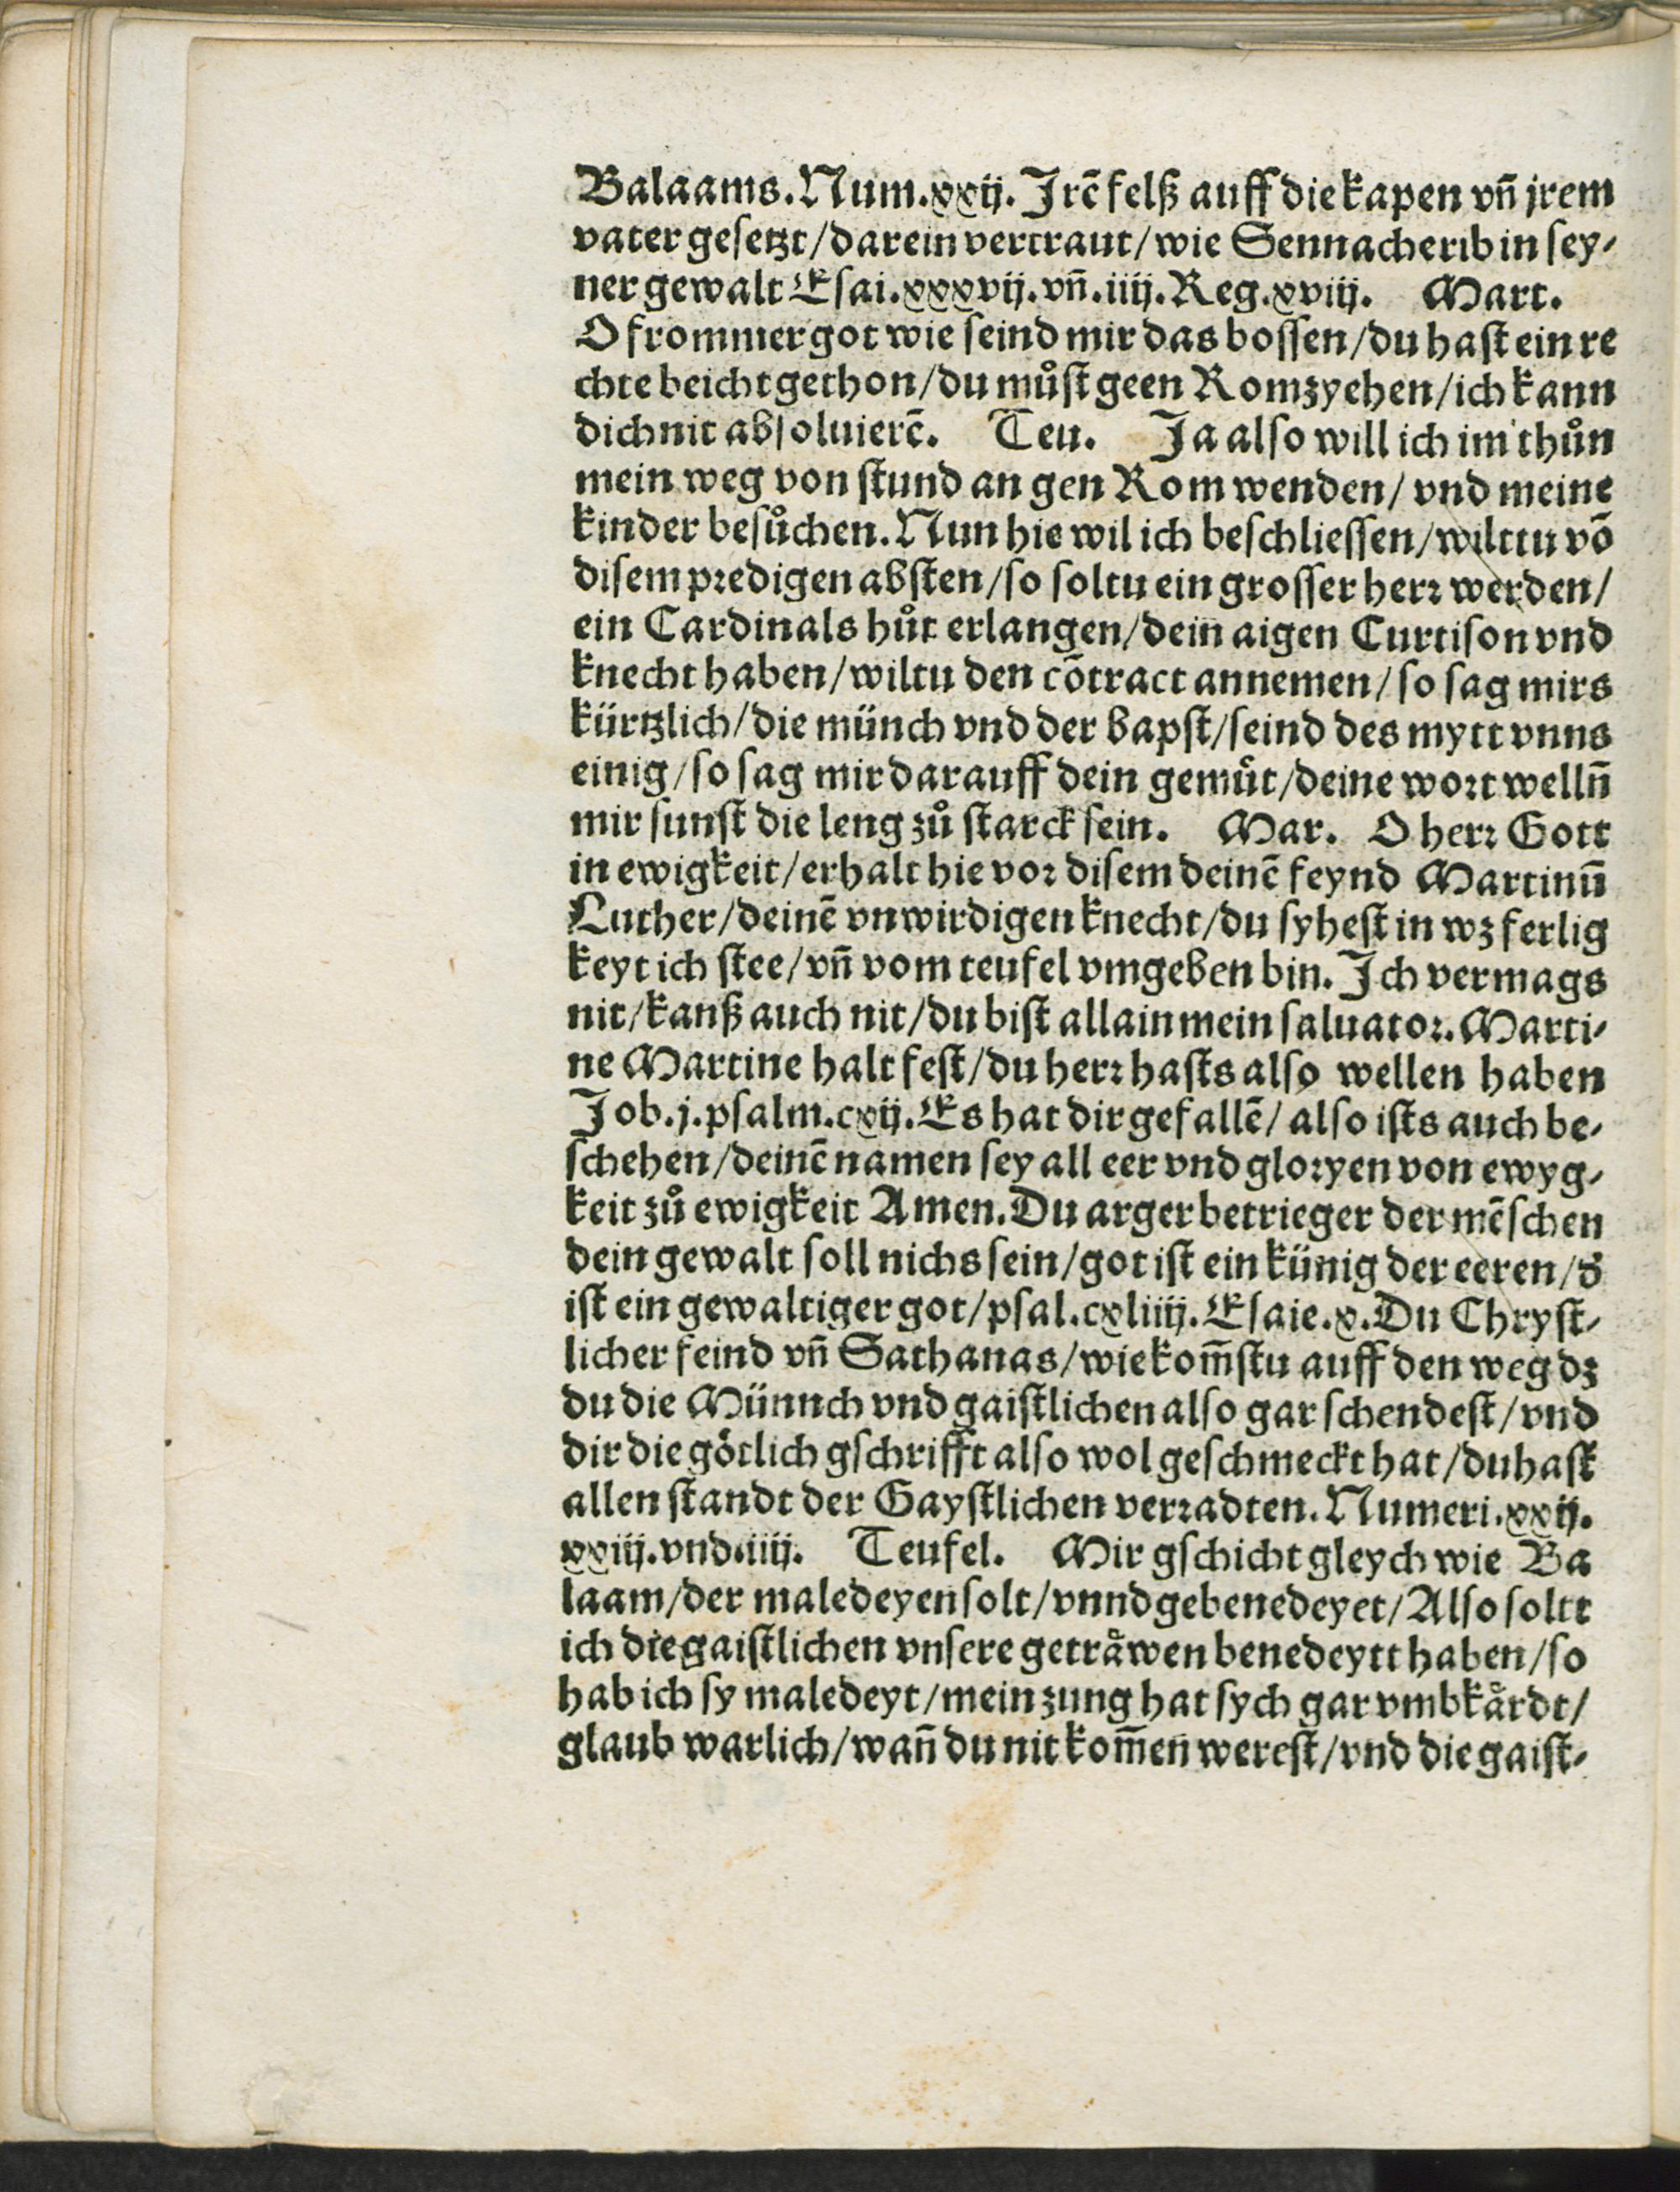 Balaams. Num. xxij. Jrē felß auff die kapen vñ jrem
vater gesetzt/ darein vertraut/ wie Sennacherib in sey⸗
ner gewalt Esai. xxxvij. vñ. iiij. Reg. xviij. Mart.
O frommer got wie seind mir das bossen/ du hast ein re
chte beicht gethon/ du můst geen Rom zyehen/ ich kann
dich nit absoluierē. Teu. Ja also will ich im thůn
mein weg von stund an gen Rom wenden/ vnd meine
kinder besůchen. Nun hie wil ich beschliessen/ wilttu vō
disem predigen absten/ so soltu ein grosser herr werden/
ein Cardinals hůt erlangen/ dein aigen Curtison vnd
knecht haben/ wiltu den cōtract annemen/ so sag mirs
kürtzlich/ die münch vnd der bapst/ seind des mytt vnns
einig/ so sag mir darauff dein gemuͤt/ deine wort wellñ
mir sunst die leng zů starck sein. Mar. O herr Gott
in ewigkeit/ erhalt hie vor disem deinē feynd Martinū
Luther/ deinē vnwirdigen knecht/ du syhest in wz ferlig
keyt ich stee/ vñ vom teufel vmgeben bin. Ich vermags
nit/ kanß auch nit/ du bist allain mein saluator. Marti⸗
ne Martine halt fest/ du herr hasts also wellen haben
Job. j. psalm. cxij. Es hat dir gefallē/ also ists auch be⸗
schehen/ deinē namen sey all eer vnd gloryen von ewyg⸗
keit zů ewigkeit Amen. Du arger betrieger der mēschen
dein gewalt soll nichs sein/ got ist ein künig der eeren/ d̛
ist ein gewaltiger got/ psal. cxliiij. Esaie. x. Du Chryst⸗
licher feind vñ Sathanas/ wie kom̄stu auff den weg dz
du die Münnch vnd gaistlichen also gar schendest/ vnd
dir die goͤtlich gschrifft also wol geschmeckt hat/ du hast
allen standt der Gaystlichen verradten. Numeri. xxij.
xxiij. vnd. iiij. Teufel. Mir gschicht gleych wie Ba
laam/ der maledeyen solt/ vnnd gebenedeyet/ Also soltt
ich die gaistlichen vnsere getraͤwen benedeytt haben/ so
hab ich sy maledeyt/ mein zung hat sych gar vmbkaͤrdt/
glaub warlich/ wañ du nit kom̄en werest/ vnd die gaist⸗